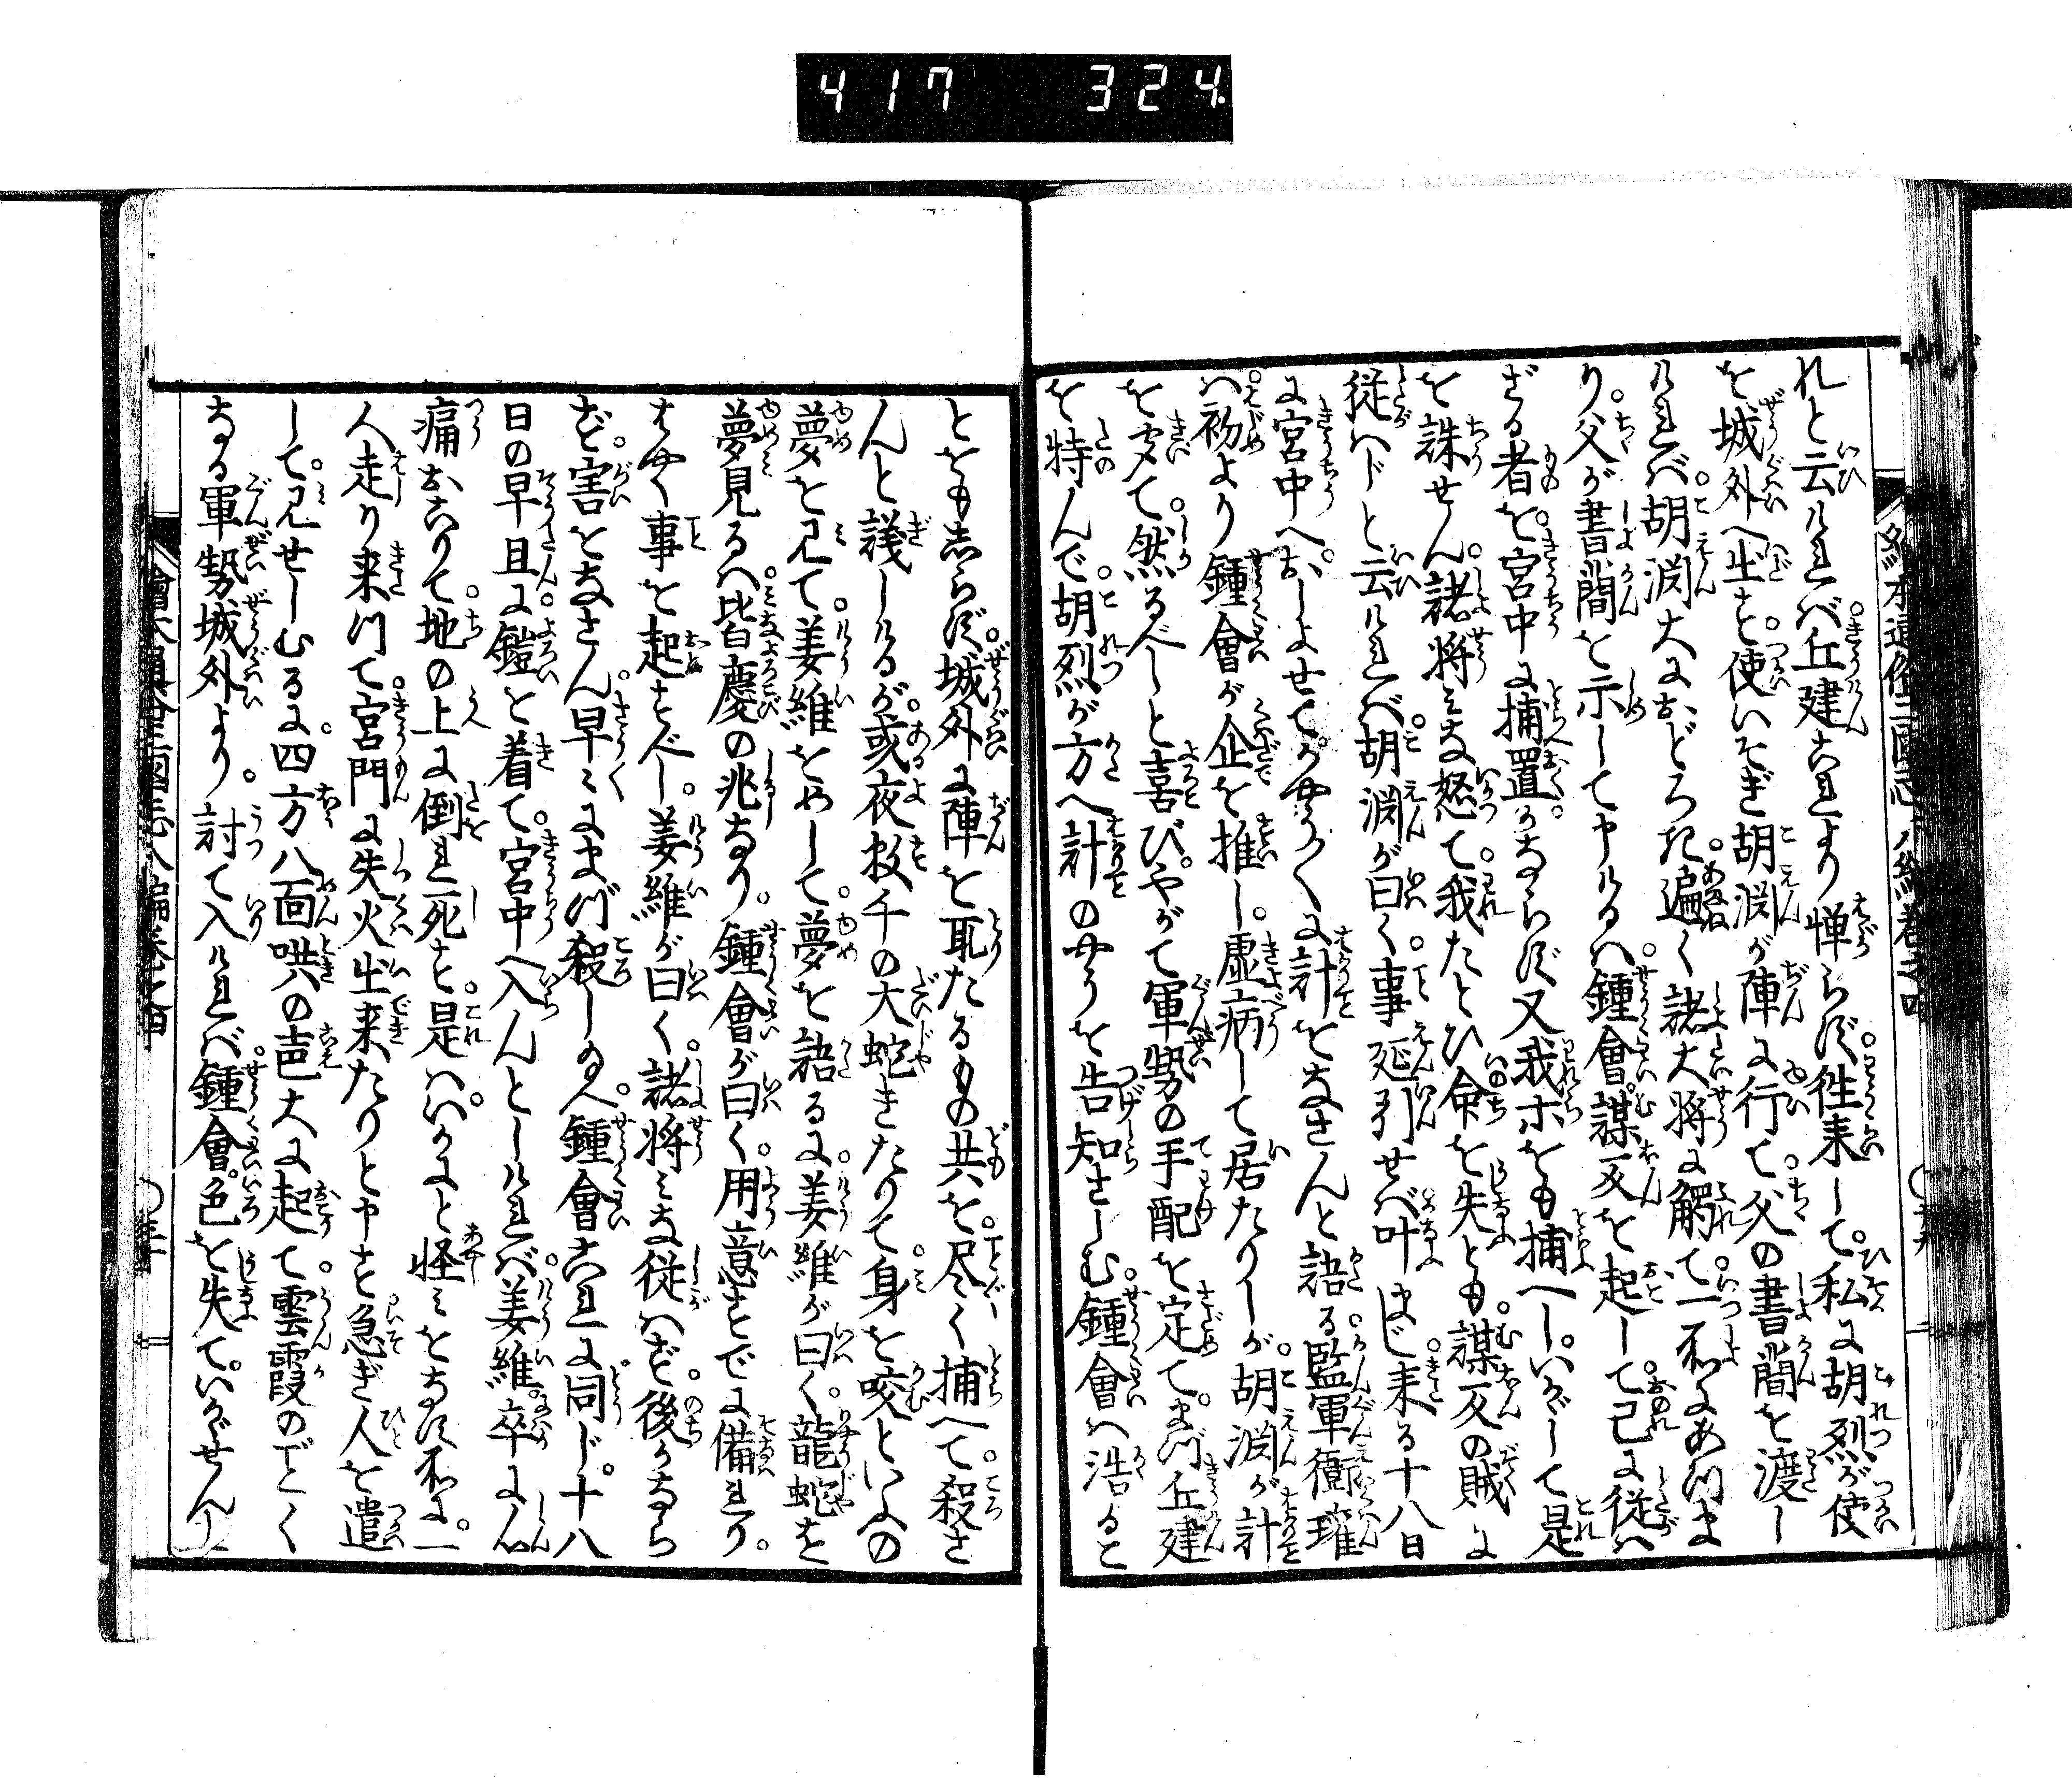 417 324.
れと云ければ丘建これより憚らず。徃来して。私に胡烈が使
を城外へ出す。使いそぎ胡渕が陣に行て。父の書簡を渡し
ければ。胡渕大におどろき。遍く諸大将に觸て。一所にあつま
り。父が書簡を示して申けるハ。鍾會。謀反を起して。己に従ハ
ざる者を。宮中に捕置。かならず又我ホをも捕へし。いかゞして是
を誅せん。諸将ミな怒て。我たとひ命を失とも。謀反の賊に
従ハじと云ければ。胡渕が曰く。事延引せバ叶まじ。来る十八日
に宮中へ。おしよせて。かやう〳〵に計をなさんと語る。監軍衛瓘
ハ。初より鍾會が企を推し。虚病して居たりしが。胡渕が計
を聞て。然るべしと喜び。やがて軍勢の手配を定て。まづ丘建
を特んで。胡烈が方へ計のやうを告知さしむ。鍾會ハ浩ると
ともしらず。城外に陣を取たるもの共を。尽く捕へて。殺さ
んと議しけるが。或夜数千の大蛇きたりて。身を咬といふの
夢を見て。姜維をめして。夢を語るに。姜維が曰く。龍蛇を
夢見るハ。皆慶の兆なり。鍾會が曰く。用意すでに備れり。
はやく事を起すべし。姜維が曰く。諸将ミな従ハず。後かなら
ず。害をなさん。早〻にまづ殺し給へ。鍾會これに同じ。十八
日の早旦に。鎧を着て。宮中へ入んとしければ。姜維。卒に心
痛おこりて。地の上に倒れ死す。是ハ。いかにと怪ミをなす所に。一
人走り来つて。宮門に失火出来たりと申す。急ぎ人を遣
して。見せしむるに。四方八面。吶の声大に起て。雲霞のごとく
なる軍勢。城外より。討て入ければ。鍾會。色を失て。いかゞせんト